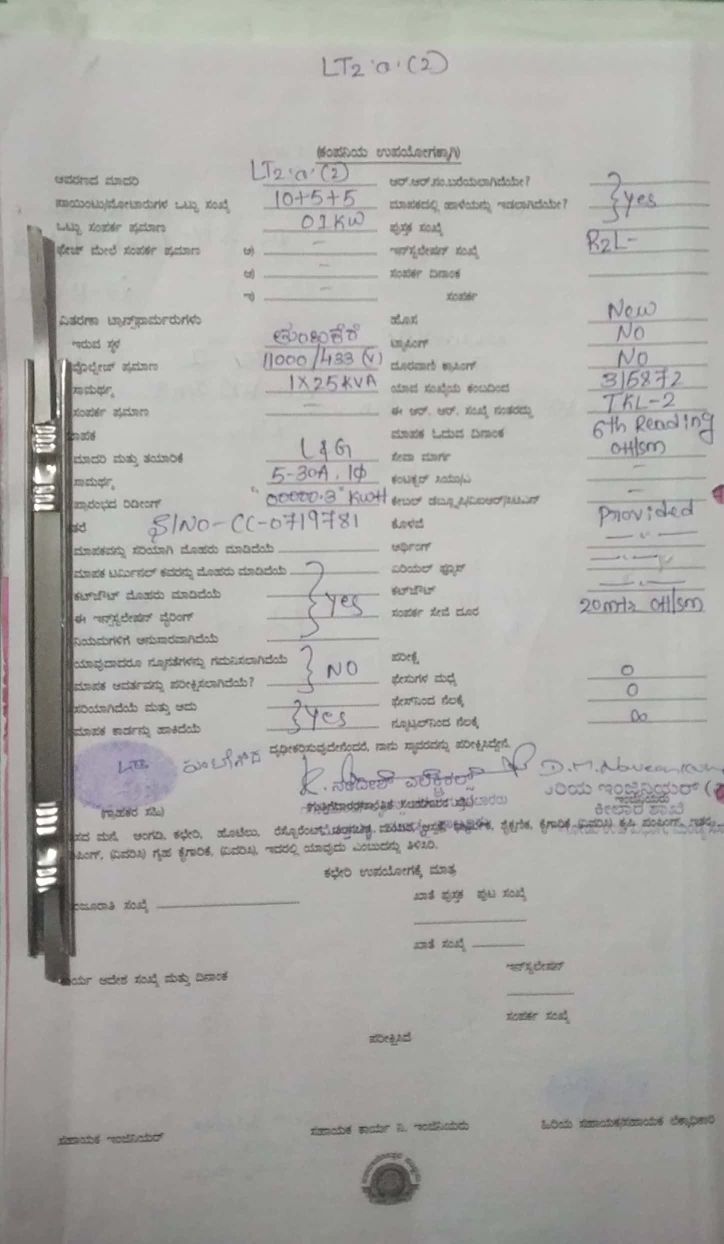 LT2·a·(2)
(ಕಂಪನಿಯ ಉಪಯೋಗಕ್ಕಾಗಿ)
ಆವರಣದ ಮಾದರಿ LT2·a·(2) ಆರ್.ಆರ್.ಸಂ.ಬರೆಯಲಾಗಿದೆಯೇ?
ಪಾಯಿಂಟು/ಮೋಟಾರುಗಳ ಒಟ್ಟು ಸಂಖ್ಯೆ 10+5+5 ಮಾಪಕದಲ್ಲಿ ಹಾಳೆಯನ್ನು ಇಡಲಾಗಿದೆಯೇ? } Yes
ಒಟ್ಟು ಸಂಪರ್ಕ ಪ್ರಮಾಣ 01KW ಪುಸ್ತಕ ಸಂಖ್ಯೆ
ಫೇಜ್ ಮೇಲೆ ಸಂಪರ್ಕ ಪ್ರಮಾಣ ಅ) – ಇನ್‌ಸ್ಟಲೇಷನ್ ಸಂಖ್ಯೆ R2L-
ಆ) – ಸಂಪರ್ಕ ದಿನಾಂಕ
ಇ) – ಸಂಪರ್ಕ
ವಿತರಣಾ ಟ್ರಾನ್ಸ್‌ಫಾರ್ಮರುಗಳು ಹೊಸ New
ಇರುವ ಸ್ಥಳ ಟ್ಯಾಪಿಂಗ್ NO
ವೋಲ್ಟೇಜ್ ಪ್ರಮಾಣ 11000/433 (V) ದೂರವಾಣಿ ಕ್ರಾಸಿಂಗ್ NO
ಸಾಮರ್ಥ್ಯ 1X25KVA ಯಾವ ಸಂಖ್ಯೆಯ ಕಂಬದಿಂದ 315872
ಸಂಪರ್ಕ ಪ್ರಮಾಣ – ಈ ಆರ್. ಆರ್. ಸಂಖ್ಯೆ ನಂತರದ್ದು TKL-2
ಮಾಪಕ ಓದುವ ದಿನಾಂಕ 6th Reading
ಮಾದರಿ ಮತ್ತು ತಯಾರಿಕೆ L&G ಸೇವಾ ಮಾರ್ಗ OH/sm
ಸಾಮರ್ಥ್ಯ 5-30A, 1Φ ಕಂಡಕ್ಟರ್ –
ಪ್ರಾರಂಭದ ರಿಡಿಂಗ್ "00000.3" KWH ಕೇಬಲ್ –
S/NO-CC-0719781 ಕೊಳವೆ Provided
ಮಾಪಕವನ್ನು ಸರಿಯಾಗಿ ಮೊಹರು ಮಾಡಿದೆಯೆ ಅರ್ಥಿಂಗ್ –"–
ಮಾಪಕ ಟರ್ಮಿನಲ್ ಕವರನ್ನು ಮೊಹರು ಮಾಡಿದೆಯೆ ಏರಿಯಲ್ ಫ್ಯೂಸ್ –"–
ಕಟ್‌ಔಟ್ ಮೊಹರು ಮಾಡಿದೆಯೆ } Yes ಕಟ್‌ಔಟ್ –"–
ಈ ಇನ್‌ಸ್ಟಲೇಷನ್ ವೈರಿಂಗ್ ಸಂಪರ್ಕ ಸೇವೆ ದೂರ 20mtr OH/sm
ನಿಯಮಗಳಿಗೆ ಅನುಸಾರವಾಗಿದೆಯೆ
ಯಾವುದಾದರೂ ನ್ಯೂನತೆಗಳನ್ನು ಗಮನಿಸಲಾಗಿದೆಯೆ } NO ಪರೀಕ್ಷೆ
ಮಾಪಕ ಆವರ್ತವನ್ನು ಪರೀಕ್ಷಿಸಲಾಗಿದೆಯೆ? ಫೇಸುಗಳ ಮಧ್ಯೆ 0
ಸರಿಯಾಗಿದೆಯೆ ಮತ್ತು ಅದು } Yes ಫೇಸ್‌ನಿಂದ ನೆಲಕ್ಕೆ 0
ಮಾಪಕ ಕಾರ್ಡನ್ನು ಹಾಕಿದೆಯೆ ನ್ಯೂಟ್ರಲ್‌ನಿಂದ ನೆಲಕ್ಕೆ
ದೃಢೀಕರಿಸುವುದೇನೆಂದರೆ, ನಾನು ಸ್ಥಾವರವನ್ನು ಪರೀಕ್ಷಿಸಿದ್ದೇನೆ.
(ಗ್ರಾಹಕರ ಸಹಿ) ಕಿರಿಯ ಇಂಜಿನಿಯರ್
ಕೀಲಾರ ಶಾಖೆ
ಮನೆ, ಅಂಗಡಿ, ಕಛೇರಿ, ಹೋಟೆಲು,
(ವಿವರಿಸಿ) ಗೃಹ ಕೈಗಾರಿಕೆ, (ವಿವರಿಸಿ), ಇದರಲ್ಲಿ ಯಾವುದು ಎಂಬುದನ್ನು ತಿಳಿಸಿರಿ.
ಕಛೇರಿ ಉಪಯೋಗಕ್ಕೆ ಮಾತ್ರ
ಮಂಜೂರಾತಿ ಸಂಖ್ಯೆ ಖಾತೆ ಪುಸ್ತಕ ಪುಟ ಸಂಖ್ಯೆ
ಖಾತೆ ಸಂಖ್ಯೆ
ಕಾರ್ಯ ಆದೇಶ ಸಂಖ್ಯೆ ಮತ್ತು ದಿನಾಂಕ ಇನ್‌ಸ್ಟಲೇಷನ್
ಸಂಪರ್ಕ ಸಂಖ್ಯೆ
ಪರೀಕ್ಷಿಸಿದೆ
ಸಹಾಯಕ ಇಂಜಿನಿಯರ್ ಸಹಾಯಕ ಕಾರ್ಯ ನಿ. ಇಂಜಿನಿಯರು ಹಿರಿಯ ಸಹಾಯಕ/ಸಹಾಯಕ ಲೆಕ್ಕಾಧಿಕಾರಿ